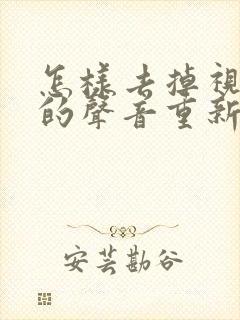 怎樣去掉視
的聲音重新
安芸勘谷